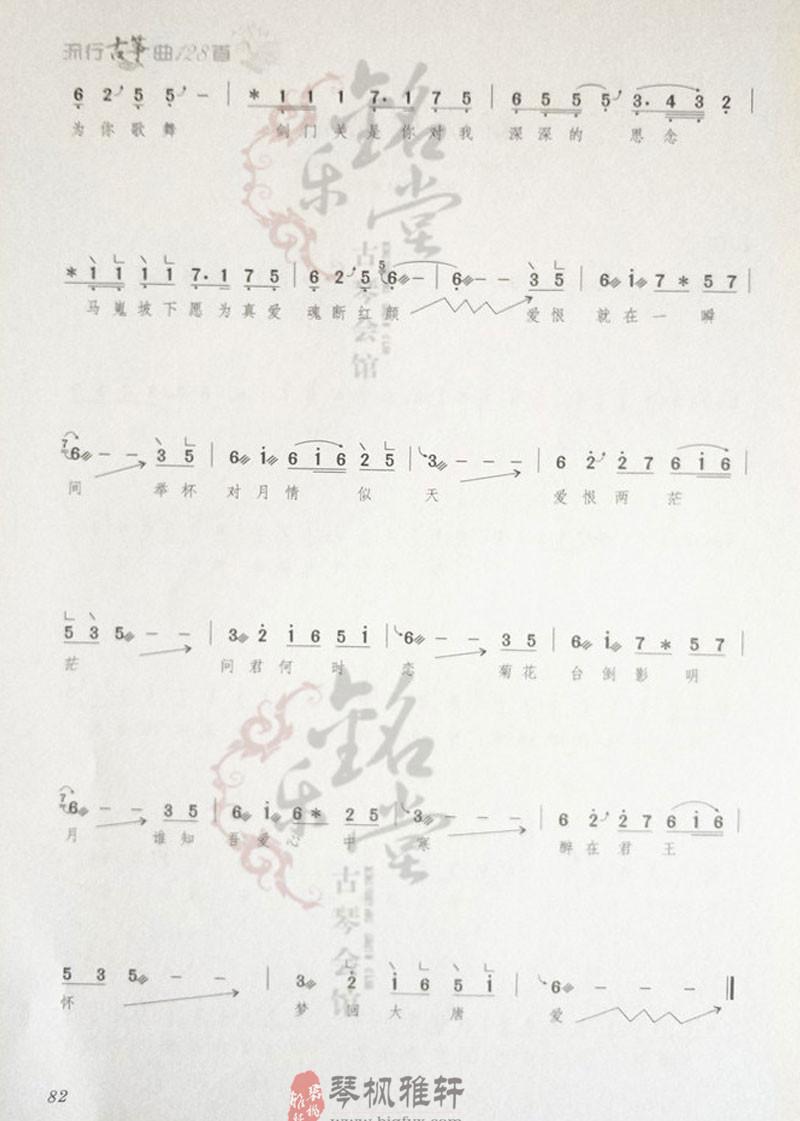 流行古筝曲128首
6 2 5 5 — | * 1 1 1 1 7. 1 7 5 | 6 5 5 5 3. 4 3 2 |
为你歌舞 剑门关是你对我 深深的 思念
* 1 1 1 1 7. 1 7 5 | 6 2 5 6 — | 6 — — 3 5 | 6 i 7 * 5 7 |
马嵬坡下愿为真爱 魂断红颜 爱恨 就在一 瞬
7 6 — — 3 5 | 6 i 6 i 6 2 5 | 3 — — — | 6 2 2 7 6 i 6 |
间 举杯 对月情 似 天 爱恨两 茫
5 3 5 — — | 3 2 i 6 5 i | 6 — — 3 5 | 6 i 7 * 5 7 |
茫 问君何 时 恋 菊花 台倒影 明
7 6 — — 3 5 | 6 i 6 * 2 5 | 3 — — — | 6 2 2 7 6 i 6 |
月 谁知 吾爱 中 寒 醉在君 王
5 3 5 — — | 3 2 i 6 5 i | 6 — — — ‖
怀 梦回大 唐 爱
銘
乐
堂
古琴会馆
銘
乐
堂
古琴会馆
82
琴枫雅轩